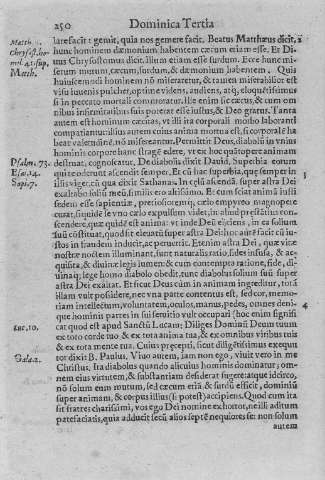 250 Dominica Tertia
late facit: gemit, quia nos gemere facit. Beatus Matthæus dicit,
hunc hominem dæmonium habentem cæcum etiam esse. Et Di-
uus Chrysostomus dicit, illum etiam esse surdum. Ecce hunc mi-
serum mutum, cæcum, surdum, & dæmonium habentem. Quis
huiuscemodi hominem nõ miseraretur, & tamen miserabilior est
vel si iuuenis pulcher, optime videns, audiens, atq; eloquẽtissimus
si in peccato mortali commoratur. Ille enim sic cæcus, & cum om
nibus infirmitatibus suis poterat esse iustus, & Deo gratus. Tanta
autem est hominum cæcitas, vt illi ita corporali morbo laboranti
compatiantur: illius autem cuius anima mortua est, si corporalẽ ha
beat valetudinẽ, nõ misereantur. Permittit Deus, diaboli in vnius
hominis corpore hanc stragẽ edere, vt ex hoc quã stupere animam
destruat, cognoscatur. De diabolis dixit Dauid, Superbia eorum
qui te oderunt ascendit semper. Et cũ hac superbia, quę semper in
illis viget, cũ qua dixit Sathanas, In cęlũ ascendã. super astra Dei
exaltabo soliũ meũ, similis ero altissimo. Et cum sciat animã iusti
sedem esse sapientiæ, pretiosioremq; cælo empyreo magnopere
curat, siquide le vno cælo expulsum videt, in aliud pręstãtius con-
scendere, quæ quidẽ est anima: vt inde Deũ eliciens, in ea solium
suũ cõstituat, quod sit eleuatũ super astra Dei: hoc autẽ facit cũ iu-
stos in fraudem inducit, ac peruertit. Etenim astra Dei, quæ vitæ
nostræ noctem illuminant, sunt naturalis ratio, fides infusa, & ac
quisita, & diuinæ legis lumen: & cum contempta ratione, fide, di-
uinaq; lege homo diabolo obedit, tunc diabolus solium suũ super
astra Dei exaltat. Et sicut Deus cùm in animam ingreditur, totã
illam vult possidere, nec vna parte contentus est, sed cor, memo-
riam intellectum, voluntatem, oculos, manus, pedes, omnes deni-
que hominis partes in sui seruitio vult occupari (hoc enim signifi
cat quod est apud Sanctũ Lucam; Diliges Dominũ Deum tuum
ex toto corde tuo & ex tota anima tua, & ex omnibus viribus tuis
& ex tota mente tua. Cuius præcepti, sicut diligẽtissimus exequt
tor dixit B. Paulus, Viuo autem, iam non ego, viuit vero in me
Christus. Ita diabolus quando alicuius hominis dominatur, om-
nem eius virtutem, & substantiam desiderat sugere: atque idcirco,
nõ solum eum mutum, sed cæcum etiã & surdũ efficit, dominiũ
super animam, & corpus illius (si potest) accipiens. Quod cum ita
sit fratres charissimi, vos ego Dei nomine exhortor, ne illi aditum
patefaciatis, quia adducit secũ alios septẽ nequiores se: non solum
autem
Matth.
Chrysost. ho
mil. 41. sup.
Matth.
Psalm. 73.
Esa. 14.
Sapi. 7.
Luc. 10.
Gala. 2.
2
3
4